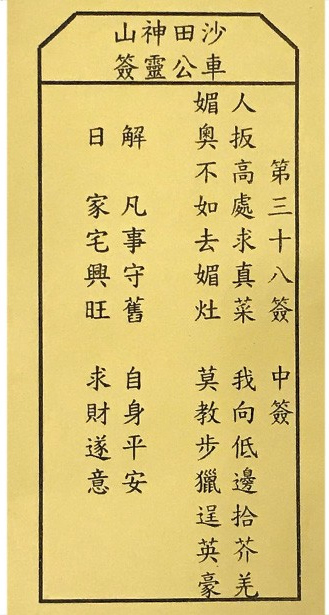 沙田神山
車公靈簽
第三十八簽 中簽
人扳高處求真菜 我向低邊拾芥羌
媚奧不如去媚灶 莫教步獵逞英豪
解 凡事守舊 自身平安
日 家宅興旺 求財遂意